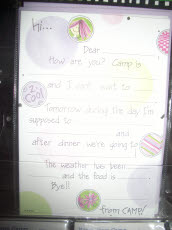 Hi...
Dear
How are you? Camp is
and I can't wait to
2 Cool!
Tomorrow during the day I'm
supposed to
and
after dinner we're going to
The weather has been
and the food is
Bye!!
from CAMP!